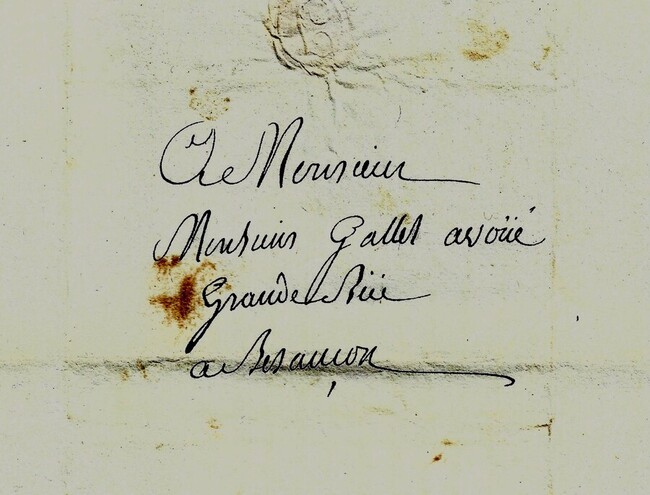 A Monsieur
Monsieur Gallet avoüé
Grande Rüe
a Besançon